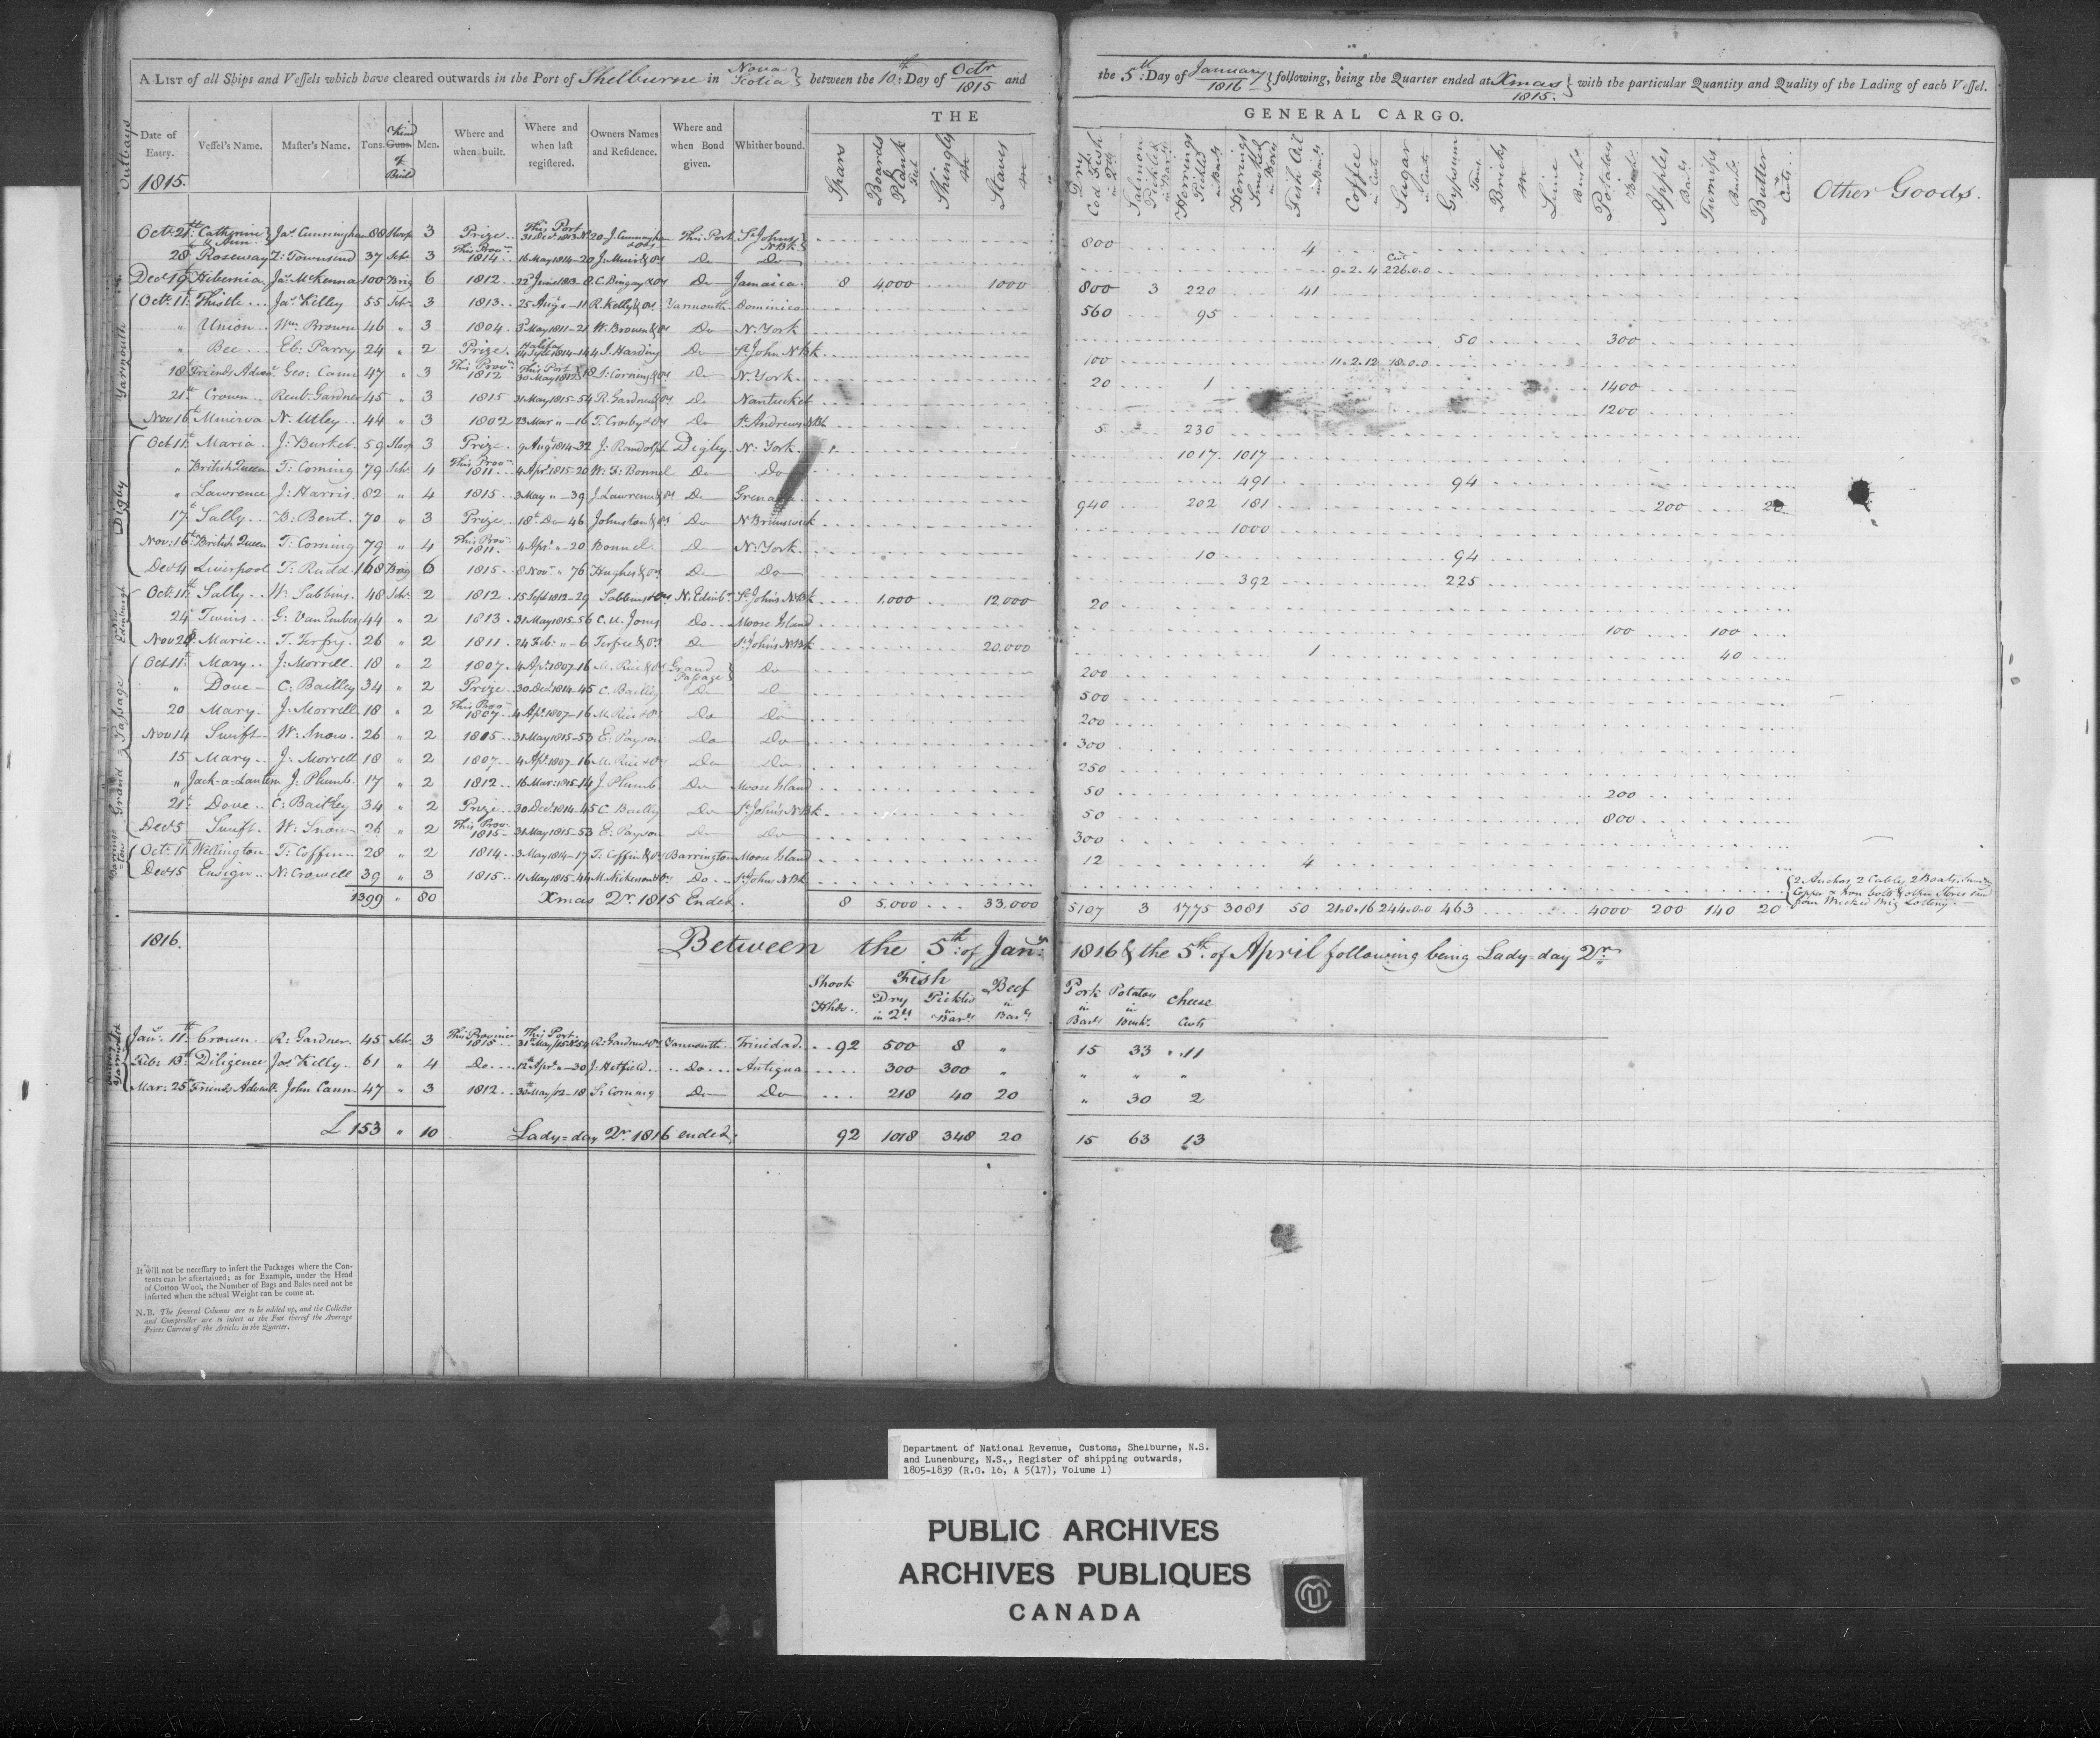 A LIST of all Ships and Vessels which have cleared outwards in the Port of Shelburne in Nova Scotia } between the 10th: Day of Octr 1815 and
Outbays
Date of Entry. Vessel's Name. Master's Name. Tons. Kind Guns. of Build Men. Where and when built. Where and when last registered. Owners Names and Residence. Where and when Bond given. Whither bound. Spars Boards & Plank Feet Shingles M Staves M
THE
1815.
Octr. 21st. Catherine & Ann. Jas. Cunningham 88 Sloop 3 Prize.. This Port 31 Decr 1813 No. 20 J. Cunningham & Ors This Port St Johns N.Bk
28 Roseway T: Townsend 37 Schr. 3 This Prov. 1814.. 16 May 1814-20 J: Muir & Or Do Do
Decr 19 Hibernia Jas. McKenna 100 Brig 6 1812.. 22 June 1813 8. C. Bingay & Or Do Jamaica. 8 4000 1000
Yarmouth
Octr. 11th Thistle ... Jas. Kelley 55 Schr. 3 1813.. 25 Augt " -11 R. Kelly & Or Yarmouth Dominica
" Union.. Wm. Brown 46 " 3 1804. 3 May 1811-21 W. Brown & Or Do N: York
" Bee... Eb: Parry 24 " 2 Prize. Halifax 14 Sept 1814-144 J. Harding Do St John N.Bk.
18 Friends Advenr. Geo: Cann 47 " 3 This Prov. 1812 This Port 30 May 1812 18 S: Corning & Or Do N: York.
21st Crown.. Reub. Gardner 45 " 3 1815 31 May 1815-54 R. Gardner & Or Do Nantucket
Nov 16th Minerva N. Utley.. 44 " 3 1802 23 Mar " -16 T. Crosby & Or Do St Andrews NBk
Digby
Oct 11th: Maria. J: Burket. 59 Sloop 3 Prize.. 9 Augt 1814-32 J: Randolph Digby N: York.
" British Queen T: Corning 79 Schr. 4 This Prov. 1811.. 4 Apr. 1815-20 W: F: Bonnel Do Do
" Lawrence J: Harris. 82 " 4 1815. 3 May " -39 J Lawrence & Or Do Grenada.
17th Sally.. B: Bent. 70 " 3 Prize.. 18th Do 46 Johnston & Ors Do N Brunswick
Nov: 16th: British Queen T: Corning 79 " 4 This Prov. 1811. 4 Apr. " -20 Bonnel. D N: York.
Decr 4 Liverpool 168 Brig 6 1815.. 8 Nov. " 76 Hughes & Or Do Do
Edinburgh
Octr. 11th Sally.. W: Sabbins. 48 Schr. 2 1812.. 15 Sept 1812-29 Sabbins & Or N. Edinbr. St Johns N.Bk 1,000 12,000
24 Twins.. G: Van Embery 44 " 2 1813. 31 May 1815-56 C. U. Jones Do.. Moose Island
Nov 24 Marie.. T. Terfry. 26 " 2 1811. 24 Feb: " -6 Terfree & Or Do St Johns N.Bk 20,000
Grand = Passage
Oct 11th: Mary.. J: Morrell. 18 " 2 1807.. 4 Apr. 1807-16 M. Rice & Or Grand Passage } Do
" Dove - C: Bailley 34 " 2 Prize.. 30 Decr 1814-45 C. Bailley Do D
20 Mary.. J: Morrell. 18 " 2 This Prov. 1807.. 4 Apr. 1807-16 M. Rice & Or Do Do
Nov 14 Swift - W: Snow. 26 " 2 1815.. 31 May 1815-53 E: Payson Do Do
15 Mary.. J: Morrell 18 " 2 1807.. 4 Apr. 1807-16 M. Rice & Or Do Do
" Jack-a-Lantern J: Plumb. 17 " 2 1812.. 16 Mar: 1815-14 J. Plumb. Do Moose Island
21st. Dove.. C: Bailey 34 " 2 Prize.. 30 Decr 1814-45 C. Bailly Do St Johns N.Bk.
Decr 5 Swift. W: Snow 26 " 2 This Prov. 1815- 31 May 1815-53 E: Payson Do Do
Barrington
Octr. 11th Wellington. T: Coffin.. 28 " 2 1814.. 3 May 1814-17 T: Coffin & Or Barrington Moose Island
Decr 15 Ensign.. N: Crowell 39 " 3 1815.. 11 May 1815-44 M. Nickerson & Or Do.. St Johns N.Bk
1399 " 80 Xmas Qr. 1815 Ended,. 8 5,000 ... 33,000
1816. Between the 5th: of Jany:
Shook Hhds. Fish Dry in Qls Pickled in Barls Beef in Barls
Yarmouth
Jany. 11th: Crown.. R: Gardner. 45 Schr. 3 This Province 1815 This Port 31st May/15-54 R: Gardner & Or Yarmouth. Trinidad. 92 500 8 "
Feb: 13th Diligence Jas. Killy. 61 " 4 Do.... 12th Apr. " -30 J: Hatfield.. Do... Antigua 300 300 "
Mar: 25th Friends Advenr. John Cann 47 " 3 1812.. 30th May/12-18 S: Corning Do Do 218 40 20
L 153 " 10 Lady=day Qr. 1816 ended, 92 1018 348 20
It will not be necessary to insert the Packages where the Contents can be ascertained; as for Example, under the Head of Cotton Wool, the Number of Bags and Bales need not be inserted when the actual Weight can be come at.
N.B. The several Columns are to be added up, and the Collector and Comptroller are to insert at the Foot thereof the Average Prices Current of the Articles in the Quarter.
the 5th: Day of January 1816 } following, being the Quarter ended at Xmas 1815. } with the particular Quantity and Quality of the Lading of each Vessel.
GENERAL CARGO.
Dry Cod Fish in Qtls Salmon Pickled in Barls Herrings Pickled in Barls Herrings Smoked in Boxes Fish Oil in Barls Coffee in Cwts Sugar in Cwts Gypsum Tons. Bricks M Lime Bush. Potatoes Bush. Apples Barls Turnips Bush. Butter Cwts. Other Goods.
800 4
9.2.4 Cwt 226.0.0
800 3 220 41
560 95
50 300
100 11.2.12 18.0.0
20 1 1400
1200
5 230
1017 1017
491 94
940 202 181 200 20
1000
10 94
392 225
20
100 100
1 40
200
500
200
300
250
50 200
50 800
300
12 4
{ 2 Anchors 2 Cables 2 Boats, Sundry Copper & Iron bolts & other Stores saved from Wrecked Brig
5107 3 1775 3081 50 21.0.16 244.0.0 463 4000 200 140 20
1816 & the 5th. of April following being Lady-day Qr.
Pork in Barls Potatoes in Bush. Cheese Cwts
15 33 11
" " "
" 30 2
15 63 13
Department of National Revenue, Customs, Shelburne, N.S.
and Lunenburg, N.S., Register of shipping outwards,
1805-1839 (R.G. 16, A 5(17), Volume 1)
PUBLIC ARCHIVES
ARCHIVES PUBLIQUES
CANADA